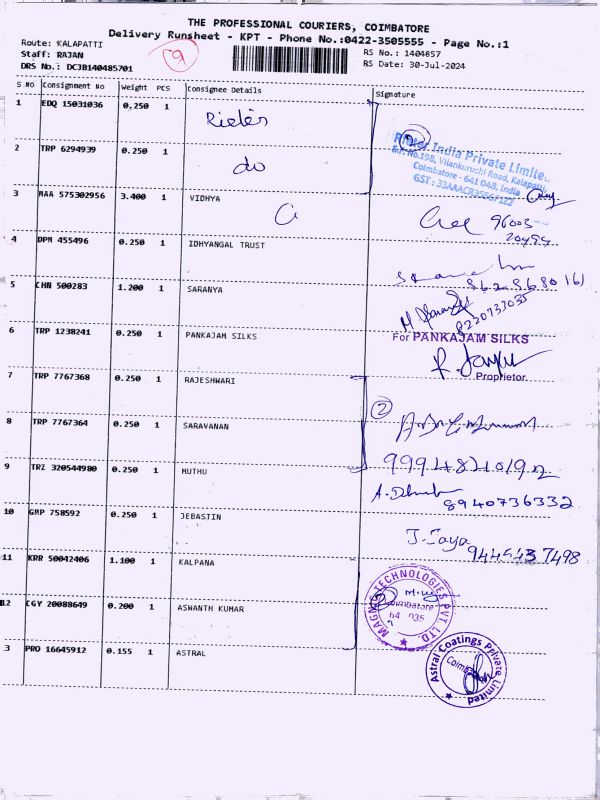 THE PROFESSIONAL COURIERS, COIMBATORE
Delivery Runsheet - KPT - Phone No.:0422-3505555 - Page No.:1
Route: KALAPATTI
Staff: RAJAN
DRS No.: DCJB140485701
9
RS No.: 1404857
RS Date: 30-Jul-2024
S.No Consignment No Weight PCS Consignee Details Signature
1 EDQ 15031036 0.250 1
2 TRP 6294939 0.250 1 do
India Private Limited
Vilankuruchi Road, Kalapatti
Coimbatore - 641 048, India
3 MAA 575302956 3.400 1 VIDHYA
96003
20499
4 DPM 455496 0.250 1 IDHYANGAL TRUST
5 CHN 500283 1.200 1 SARANYA
8220733035
6 TRP 1238241 0.250 1 PANKAJAM SILKS
For PANKAJAM SILKS
Proprietor.
7 TRP 7767368 0.250 1 RAJESHWARI
2
8 TRP 7767364 0.250 1 SARAVANAN
9 TRZ 320544980 0.250 1 MUTHU
8940736332
10 GMP 758592 0.250 1 JEBASTIN
J. Jaya
11 KRR 50042406 1.100 1 KALPANA
TECHNOLOGIES PVT. LTD.
Coimbatore
12 CGY 20088649 0.200 1 ASWANTH KUMAR
3 PRO 16645912 0.155 1 ASTRAL
Astral Coatings Private Limited